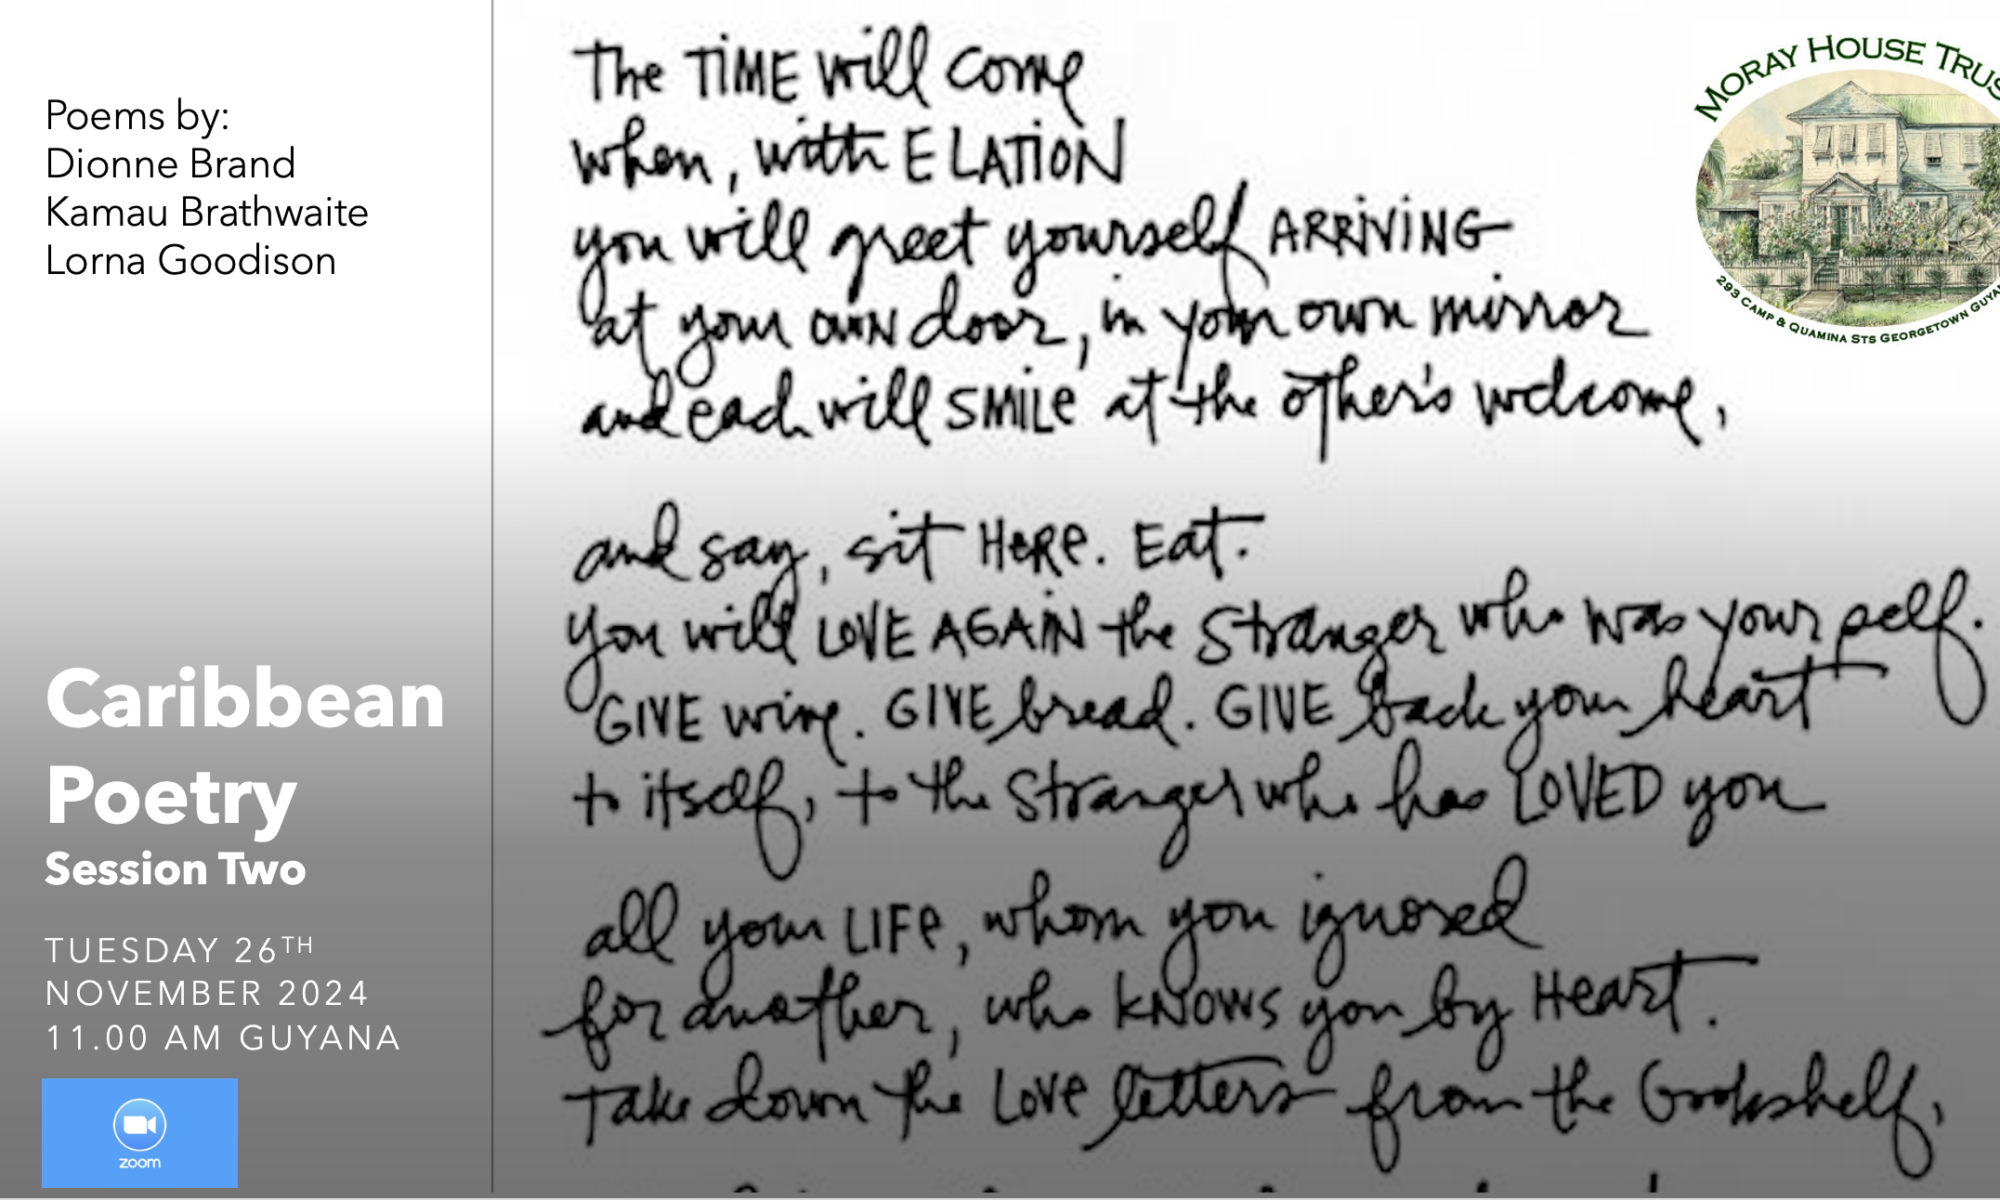 Poems by:
Dionne Brand
Kamau Brathwaite
Lorna Goodison
Caribbean
Poetry
Session Two
TUESDAY 26TH
NOVEMBER 2024
11.00 AM GUYANA
zoom
The TiME will come
when, with ELATiON
you will greet yourself ARRiViNG
at your own door, in your own mirror
and each will SMiLe at the other's welcome,
and say, sit HeRe. Eat.
you will LOVE AGAiN the stranger who was your self.
GIVE wine. GIVE bread. GIVE back your heart
to itself, to the stranger who has LOVED you
all your LIFe, whom you ignored
for another, who KNOWS you by Heart.
Take down the LOVe letters from the bookshelf,
MORAY HOUSE TRUS
293 CAMP & QUAMINA STS GEORGETOWN GUYA